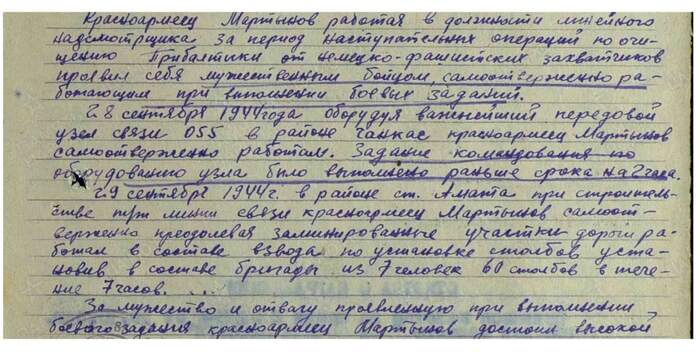 Красноармеец Мартынов работая в должности линейного
надсмотрщика за период наступательных операций по очи-
щению Прибалтики от немецко-фашистских захватчиков
проявил себя мужественным бойцом, самоотверженно ра-
ботающим при выполнении боевых заданий.
28 сентября 1944 года оборудуя важнейший передовой
узел связи 055 в районе Ганкас красноармеец Мартынов
самоотверженно работал. Задание командования по
оборудованию узла было выполнено раньше срока на 2 часа.
29 сентября 1944 г. в районе ст. Амата при строитель-
стве линии связи красноармеец Мартынов самоот-
верженно преодолевая заминированные участки дороги ра-
ботал в составе взвода по установке столбов уста-
новив в составе бригады из 7 человек 60 столбов в тече-
ние 7 часов.
За мужество и отвагу проявленную при выполнении
боевого задания красноармеец Мартынов достоин высокой